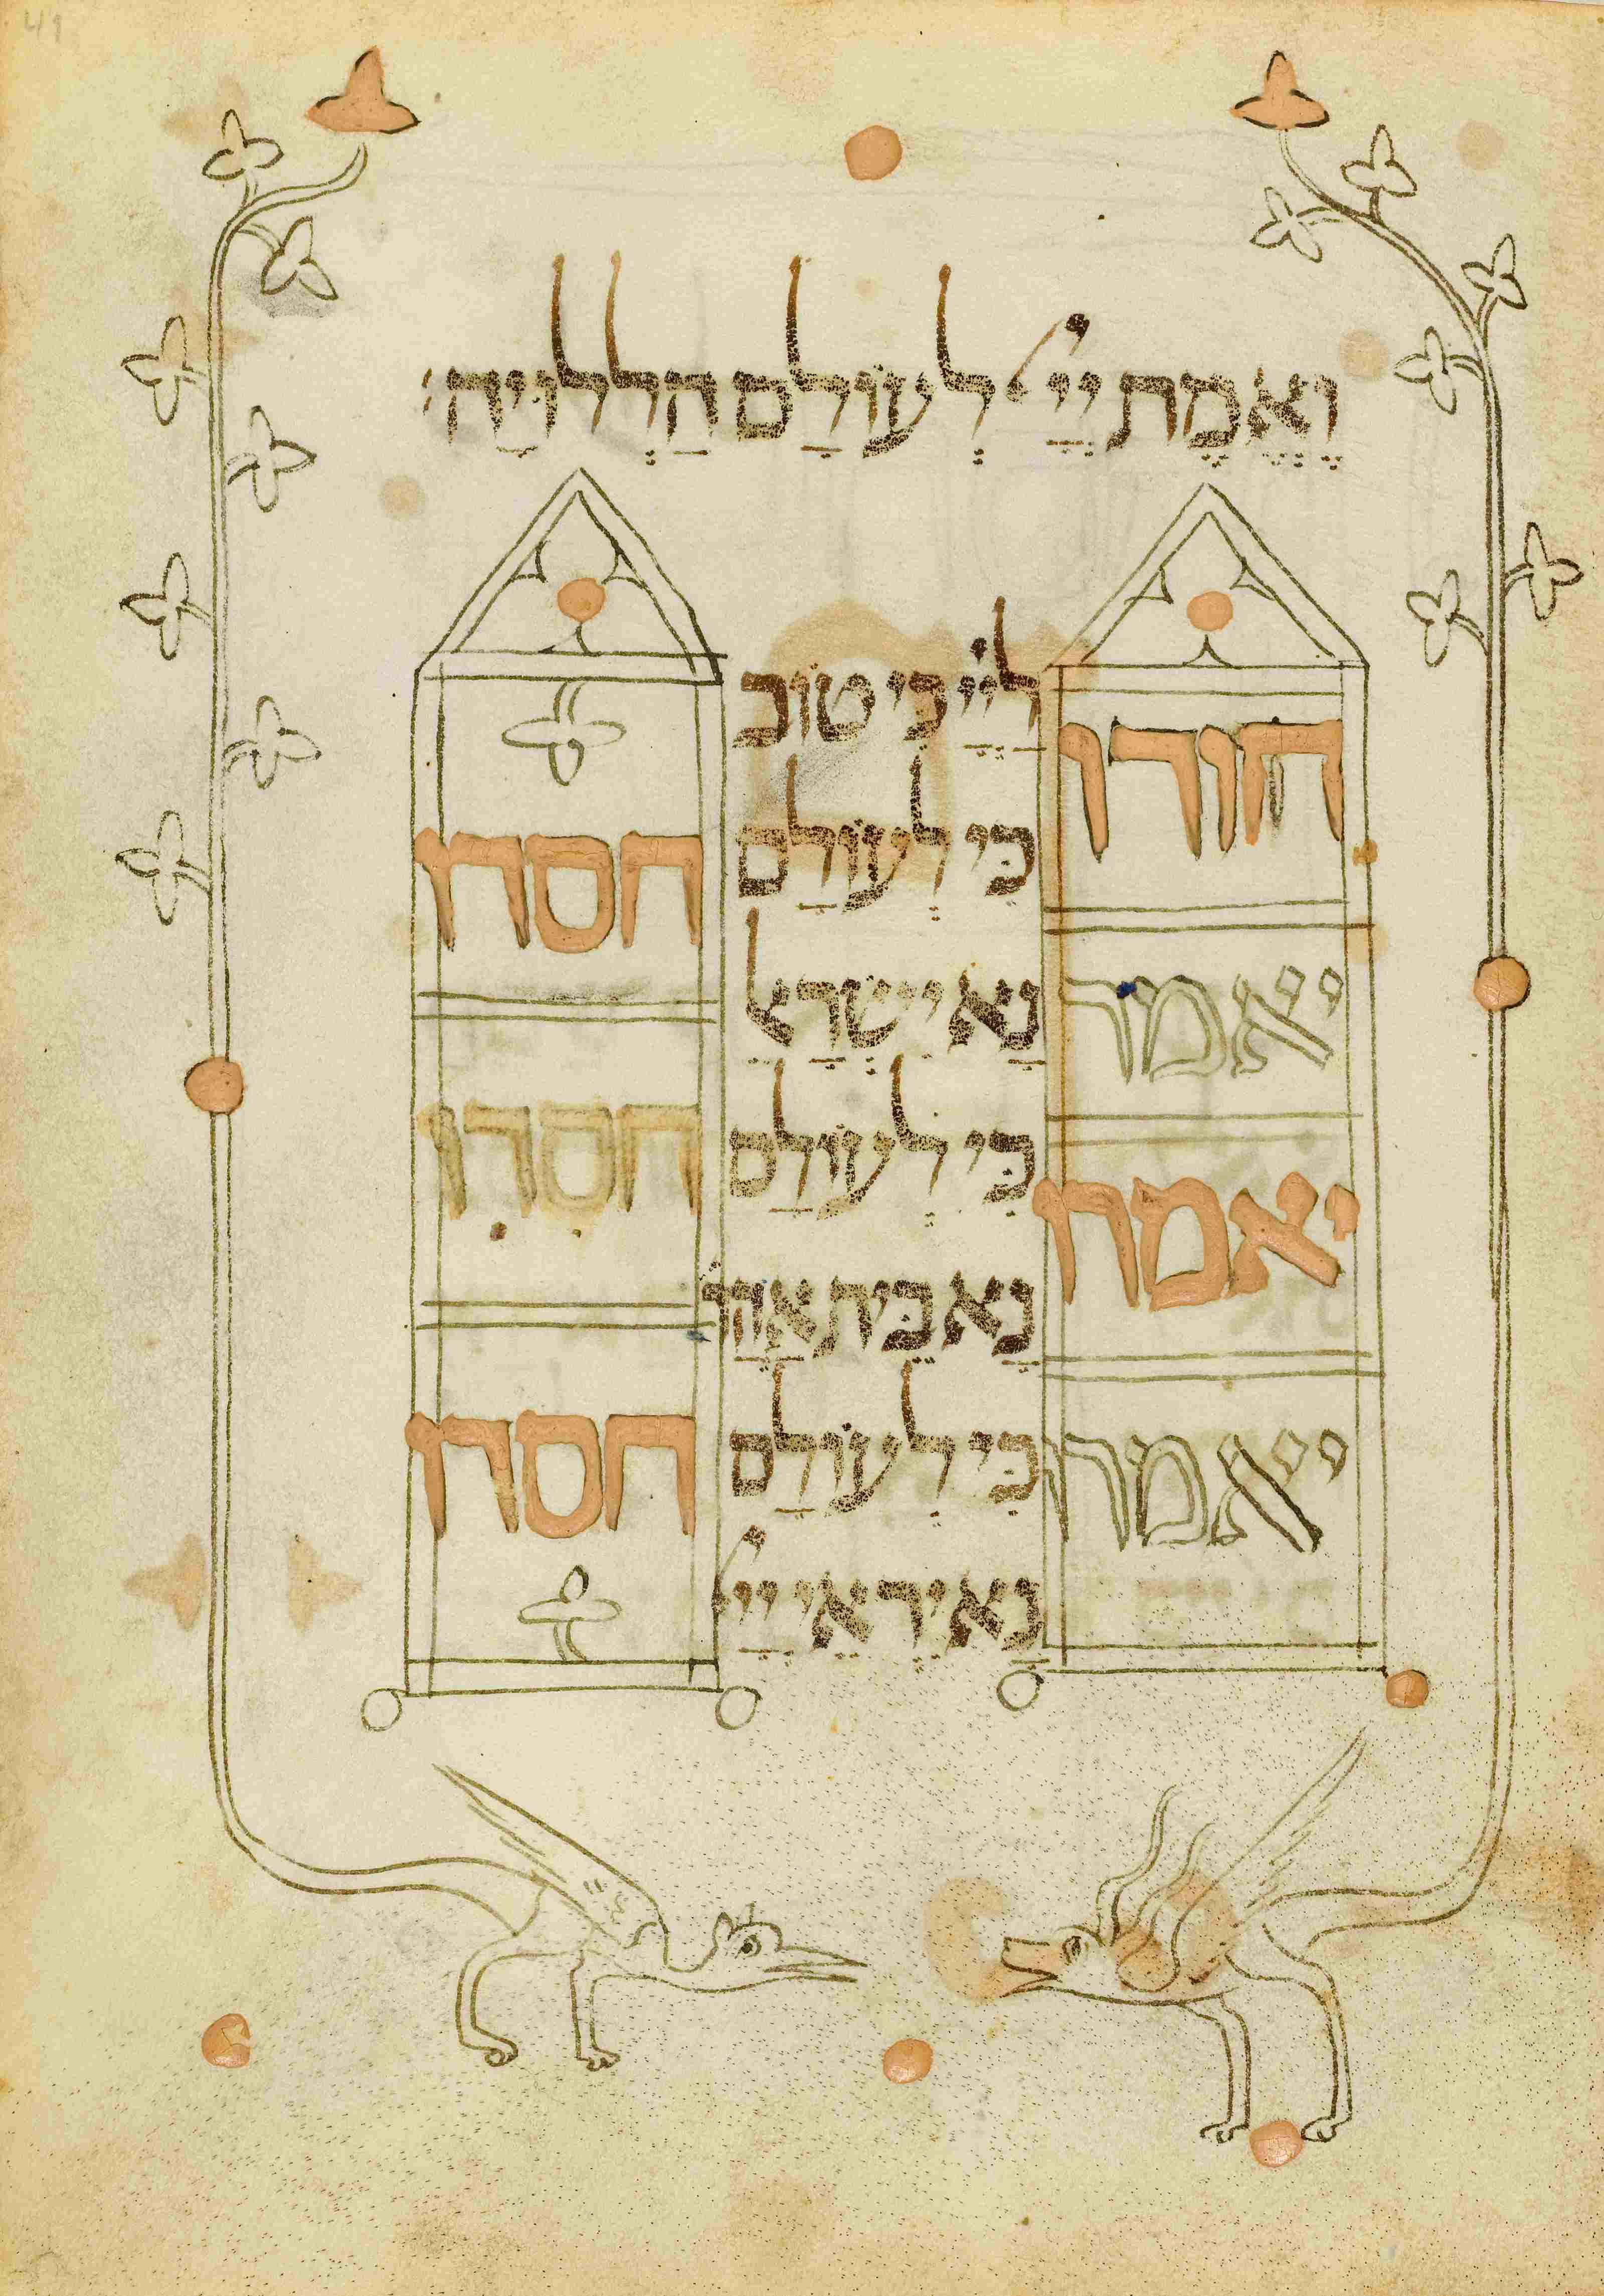 49
וֶאֱמֶת יְיָ לְעוֹלָם הַלְלוּיָהּ׃
הודו לַיְיָ כִּי טוֹב
כִּי לְעוֹלָם חסדו
יאמר נָא יִשְׂרָאֵל
כִּי לְעוֹלָם חסדו
יאמרו נָא בֵּית אַהֲר׳
כִּי לְעוֹלָם חסדו
יאמרו נָא יִרְאֵי יְיָ